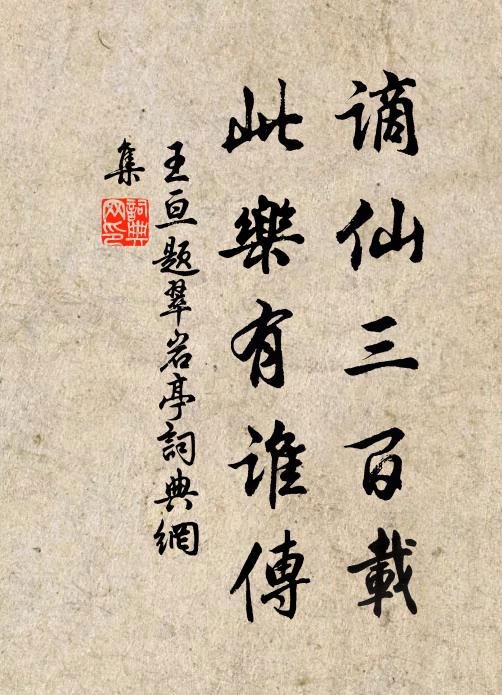 謫仙三百載
此樂有誰傳
王亘題翠岩亭詞典網
集
詞典
网印